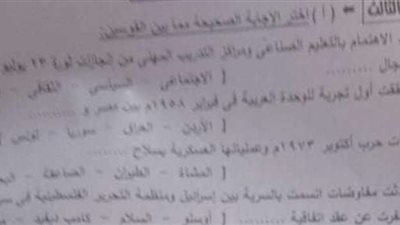 الثالث ← ( أ ) اختر الإجابة الصحيحة مما بين القوسين:
الاهتمام بالتعليم الصناعى ومراكز التدريب المهنى من إنجازات ثورة ٢٣ يوليو
جال ........ ( الاجتماعى - السياسى - الثقافى -
قت أول تجربة للوحدة العربية فى فبراير ١٩٥٨م بين مصر و ........
( الأردن - العراق - سوريا - تونس )
ت حرب أكتوبر ١٩٧٣م وعملياتها العسكرية بسلاح ........
( المشاة - الطيران - الصاعقة -
ثت مفاوضات اتسمت بالسرية بين إسرائيل ومنظمة التحرير الفلسطينية فى
فرت عن عقد اتفاقية ........ ( أوسلو - السلام - كامب ديفيد -